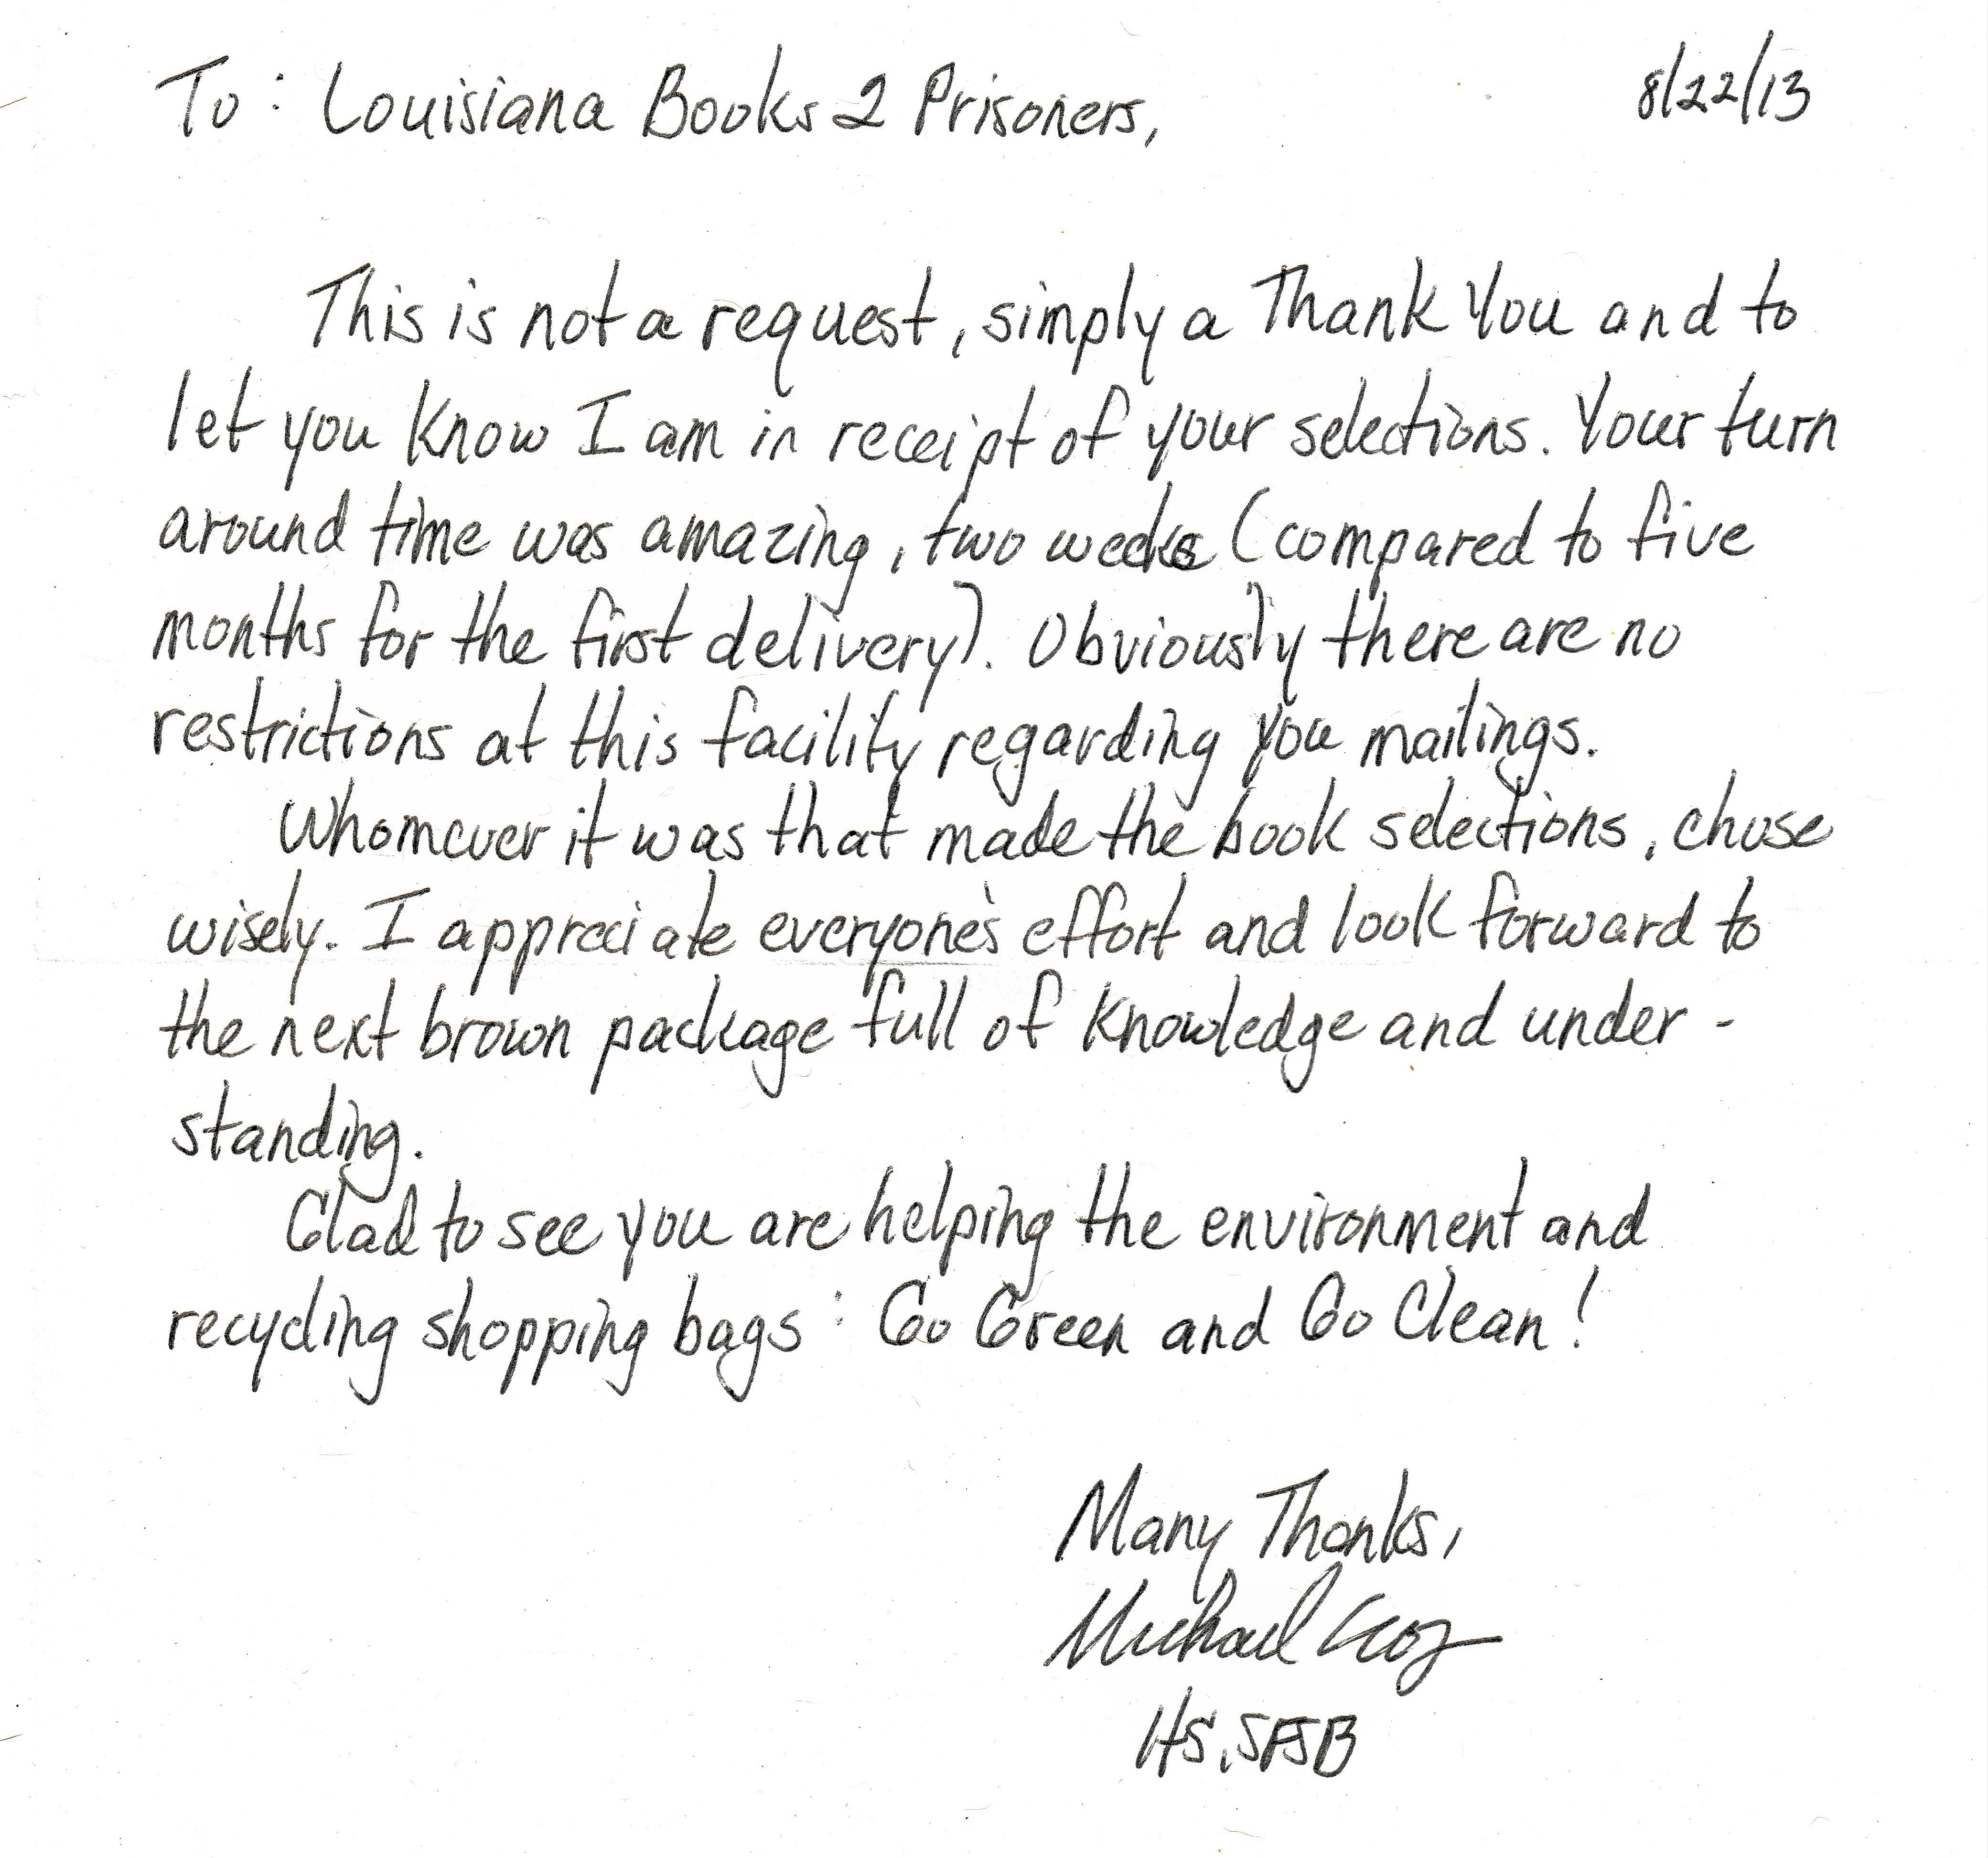 To: Louisiana Books 2 Prisoners, 8/22/13
This is not a request, simply a Thank You and to
let you know I am in receipt of your selections. Your turn
around time was amazing, two weeks (compared to five
months for the first delivery). Obviously there are no
restrictions at this facility regarding you mailings.
Whomever it was that made the book selections, chose
wisely. I appreciate everyone's effort and look forward to
the next brown package full of knowledge and under-
standing.
Glad to see you are helping the environment and
recycling shopping bags: Go Green and Go Clean!
Many Thanks,
Michael